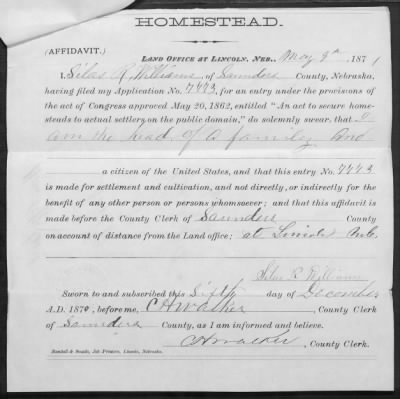 HOMESTEAD.
(AFFIDAVIT.)
LAND OFFICE AT LINCOLN, NEB., May 9th, 1871
I, Silas R. Williams, of Saunders County, Nebraska,
having filed my Application No. 7773, for an entry under the provisions of
the act of Congress approved May 20, 1862, entitled "An act to secure home-
steads to actual settlers on the public domain," do solemnly swear, that I
am the head of a family and
a citizen of the United States, and that this entry No. 7773
is made for settlement and cultivation, and not directly, or indirectly, for the
benefit of any other person or persons whomsoever; and that this affidavit is
made before the County Clerk of Saunders County
on account of distance from the Land office; at Lincoln Neb.
Silas R Williams
Sworn to and subscribed this Sixth day of December
A.D. 1870, before me, C H Walker, County Clerk
of Saunders County, as I am informed and believe.
CH Walker, County Clerk.
Job Printers, Lincoln, Nebraska.